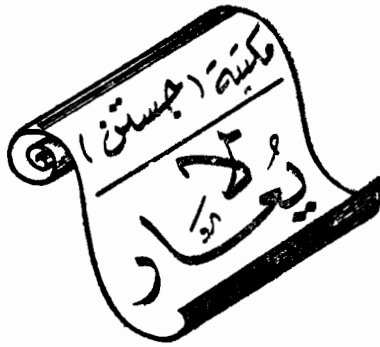 مكتبة (جستن)
لا
يُعَار